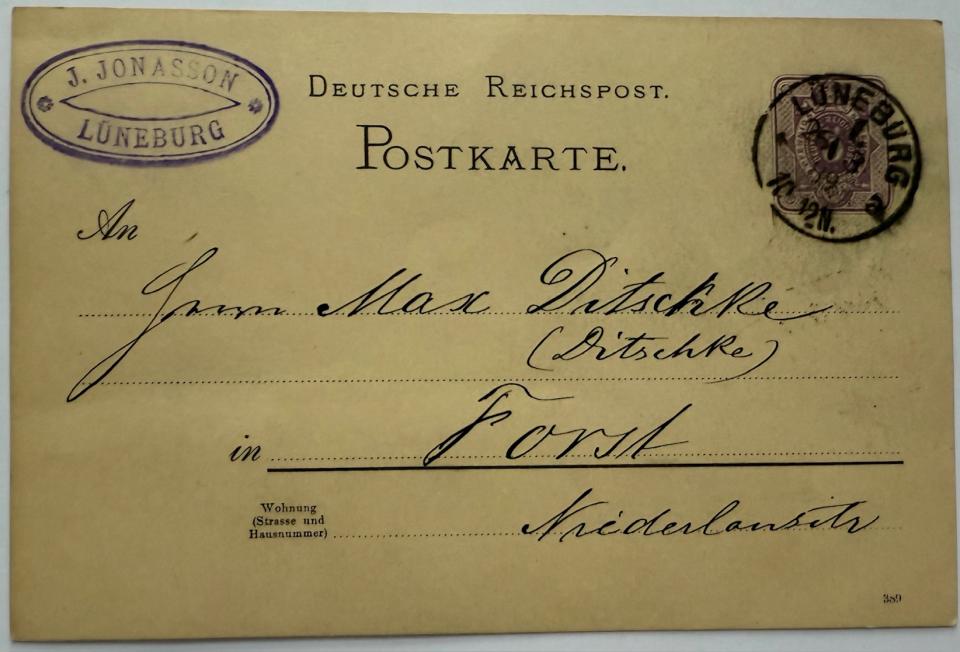 J. JONASSON
LÜNEBURG
DEUTSCHE REICHSPOST.
POSTKARTE.
LÜNEBURG
An
Herrn Max Ditschke
(Ditschke)
in Forst
Wohnung
(Strasse und
Hausnummer)
Niederlausitz
389